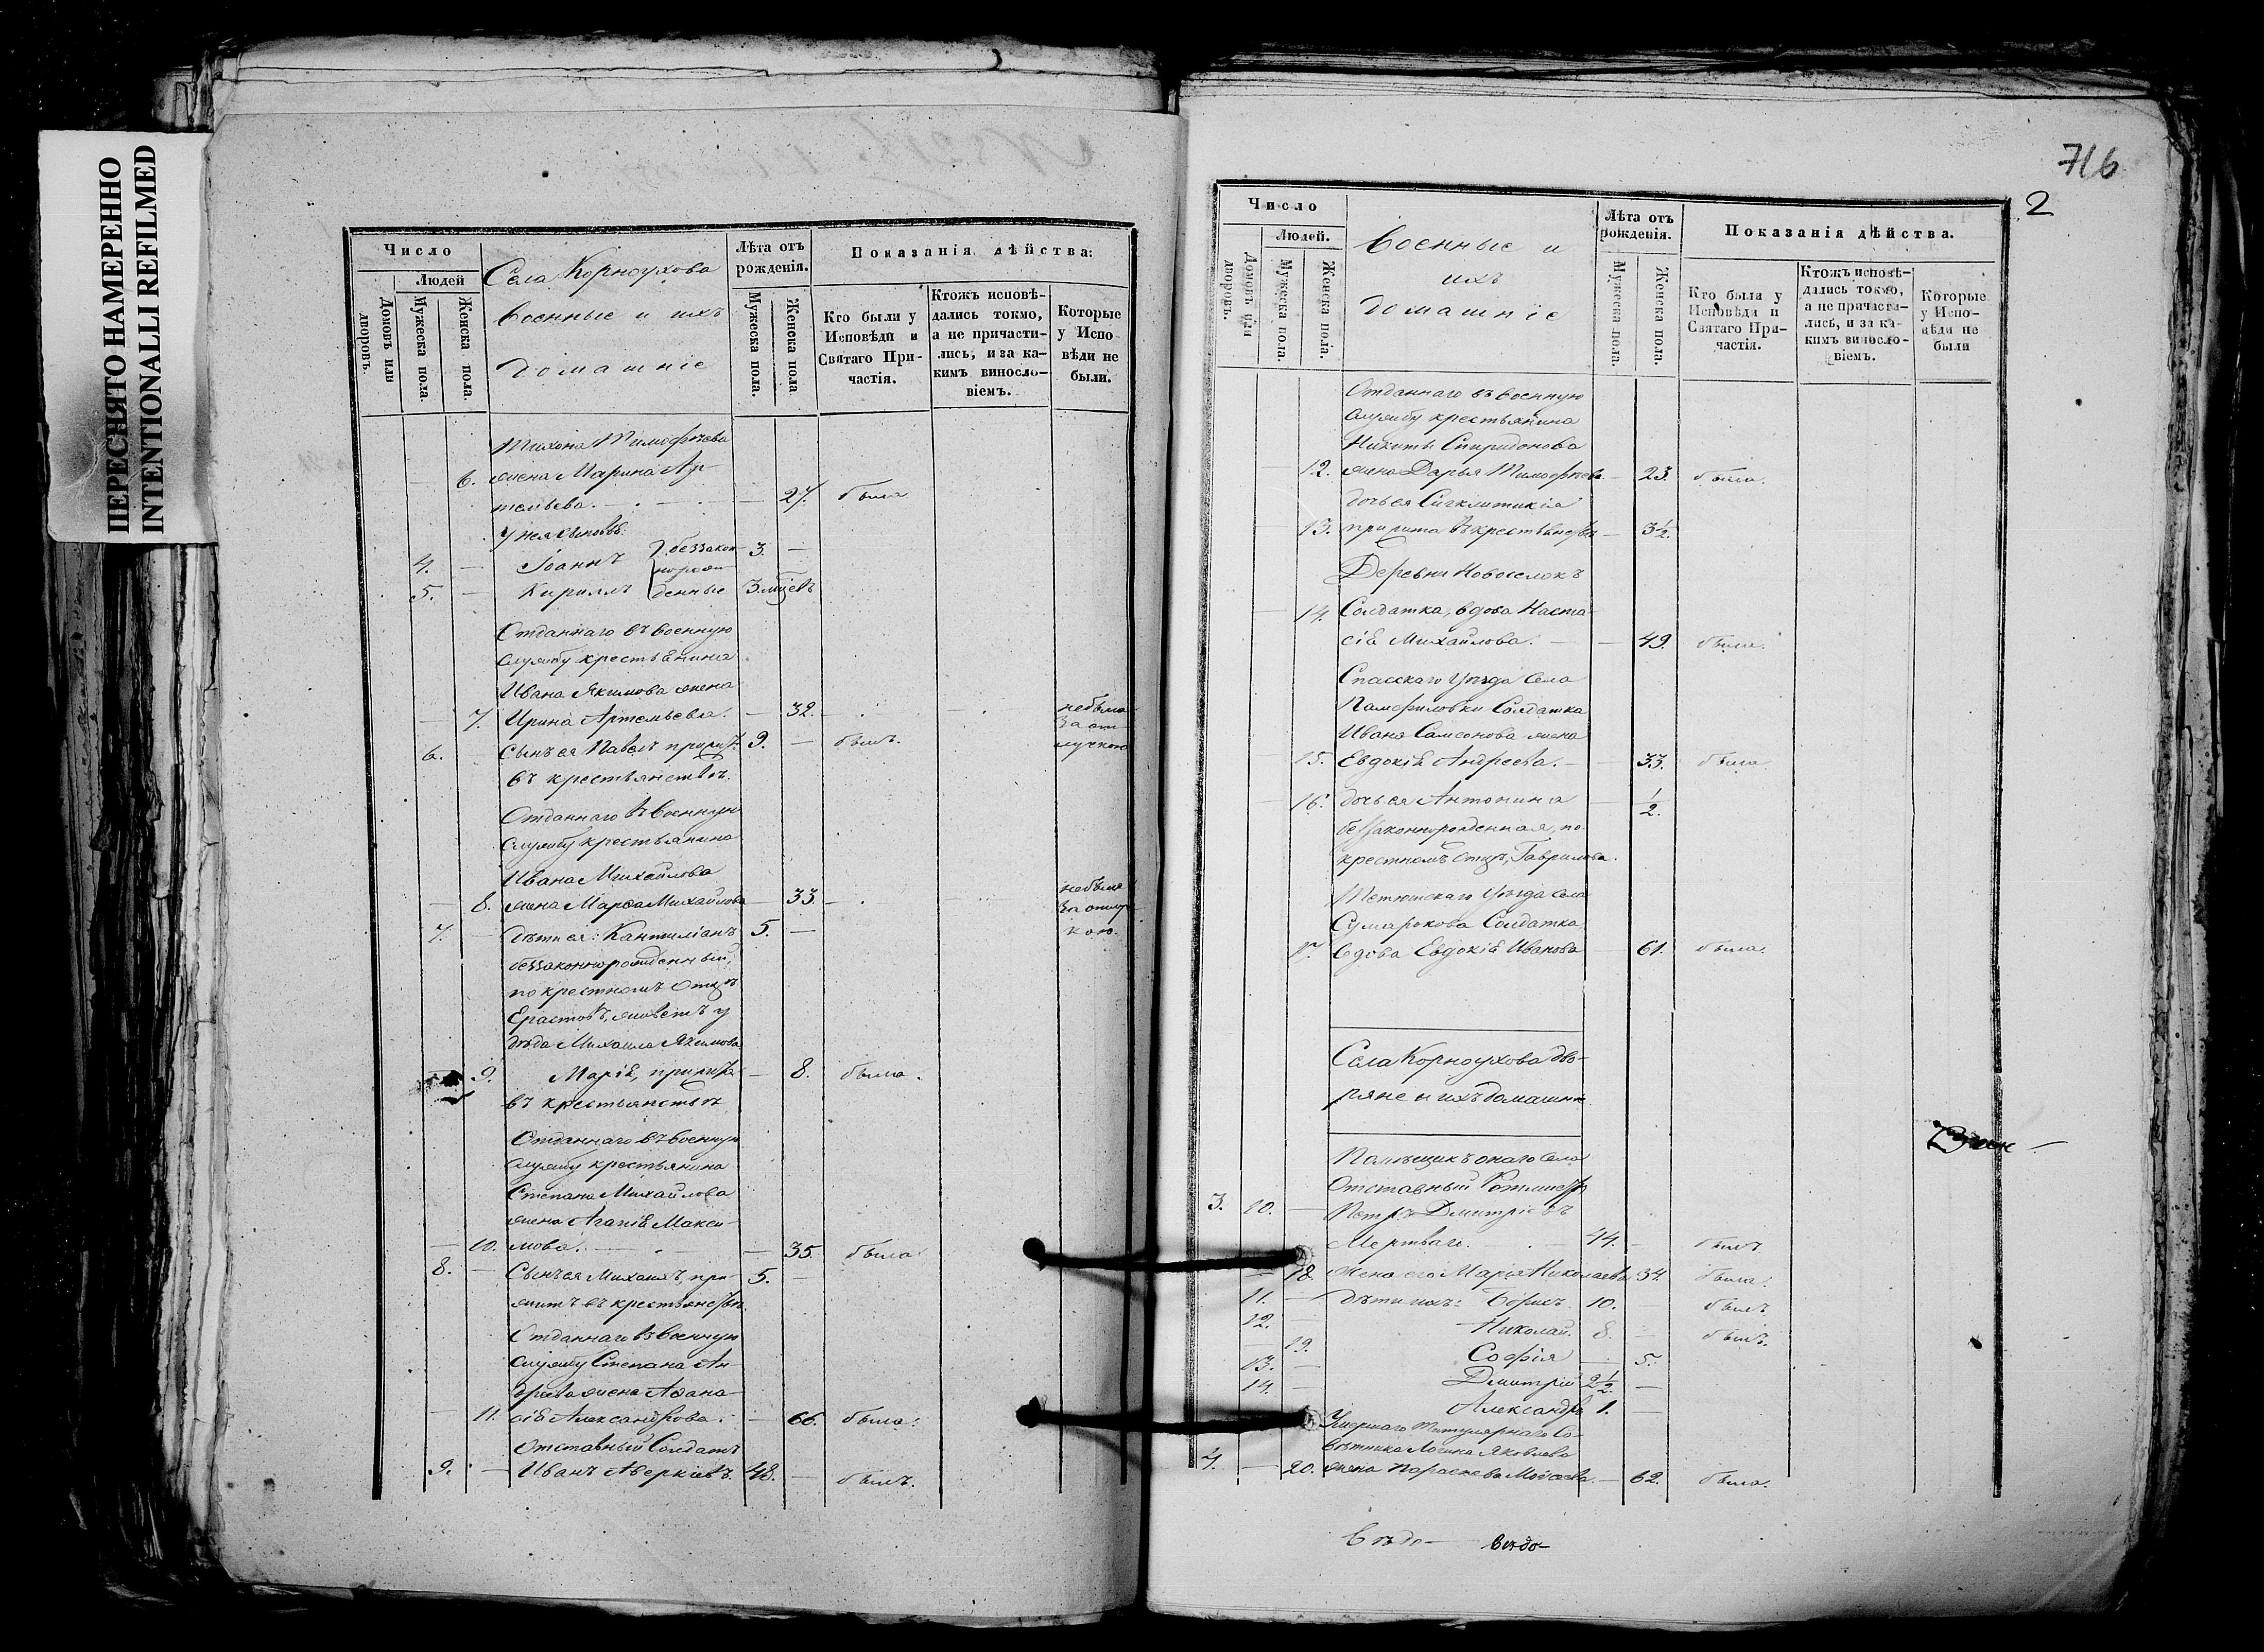 ПЕРЕСНЯТО НАМЕРЕННО
INTENTIONALLI REFILMED
Число
Людей
Домовъ или дворовъ.
Мужеска пола.
Женска пола.
Села Корноухова
Военные и ихъ
домашніе
Лѣта отъ рожденія.
Мужеска пола.
Женска пола
Показанія дѣйства:
Кто были у Исповѣди и Святаго Причастія.
Ктожъ исповѣдались токмо, а не причастились, и за какимъ винословіемъ.
Которые у Исповѣди не были.
Тихона Тимофѣева
6. жена Марина Ар-
темьева. — 27. была
У нея сыновья:
4. — Іоаннъ беззакон- 3. —
норож-
5. — Кириллъ денные 3. мѣсяцѣвъ
Отданнаго въ военную
службу крестьянина
Ивана Якимова жена
— 7. Ирина Артемьева. — 32. небыла
за от-
6. — Сынъ ея Павелъ припис. 9. — былъ. лучкою
въ крестьянствѣ.
Отданнаго въ военную
службу крестьянина
Ивана Михайлова
— 8. жена Марѳа Михайлова — 33. небыла
за отлуч-
7. — Дѣти ея: Кантиліанъ 5. — кою.
беззаконнорожденный,
по крестномъ отцѣ
Ерастовъ, живетъ у
дѣда Михаила Якимова
9. Марія, припис. — 8. была.
въ крестьянствѣ
Отданнаго въ военную
службу крестьянина
Степана Михайлова
жена Агапія Макси-
— 10. мова. — 35. была.
8. — Сынъ ея Михаилъ, при- 5. —
житъ въ крестьянствѣ
Отданнаго въ военную
службу Степана Ан-
дреева жена Аѳана-
— 11. сія Александрова. — 66. была.
Отставный Солдатъ
9. — Иванъ Аверкіевъ 48. — былъ.
716
2
Число
Людей.
Домовъ или дворовъ.
Мужеска пола.
Женска пола.
Военные и
ихъ
домашніе
Лѣта отъ рожденія.
Мужеска пола.
Женска пола.
Показанія дѣйства.
Кто были у Исповѣди и Святаго Причастія.
Ктожъ исповѣдались токмо, а не причастились, и за какимъ винословіемъ.
Которые у Исповѣди не были
Отданнаго въ военную
службу крестьянина
Никиты Спиридонова
— 12. жена Дарья Тимофѣева — 23. была.
дочь ея Сигклитикія
— 13. прижита въ крестьянствѣ — 3½.
Деревни Новоселокъ
— 14. Солдатка, вдова Наста-
сія Михайлова. — 49. была.
Спасскаго уѣзда села
Памфиловки Солдатка
Ивана Самсонова жена
15. Евдокія Андреева. — 33. была.
— 16. дочь ея Антонина — ½.
беззаконнорожденная, по
крестномъ отцѣ, Гаврилова.
Тетюшскаго уѣзда села
Сумарокова Солдатка
17. вдова Евдокія Иванова — 61. была.
Села Корноухова дво-
ряне и ихъ домашніе
Помѣщикъ онаго села
Отставный Ротмистръ
3. 10. — Петръ Дмитріевъ
Мертваго. — 44. — былъ
— 18. жена его Марія Николаева 34. была.
11. — дѣти ихъ: Борисъ 10. — былъ
12. — Николай. 8. — былъ.
— 19. Софія — 5.
13. — Дмитрій 2½. —
14. — Александръ 1. —
Умершаго Титулярнаго Со-
вѣтника Логина Яковлева
4. — 20. жена Параскева Моисеева — 62. была.
Вѣдо- вѣдо-